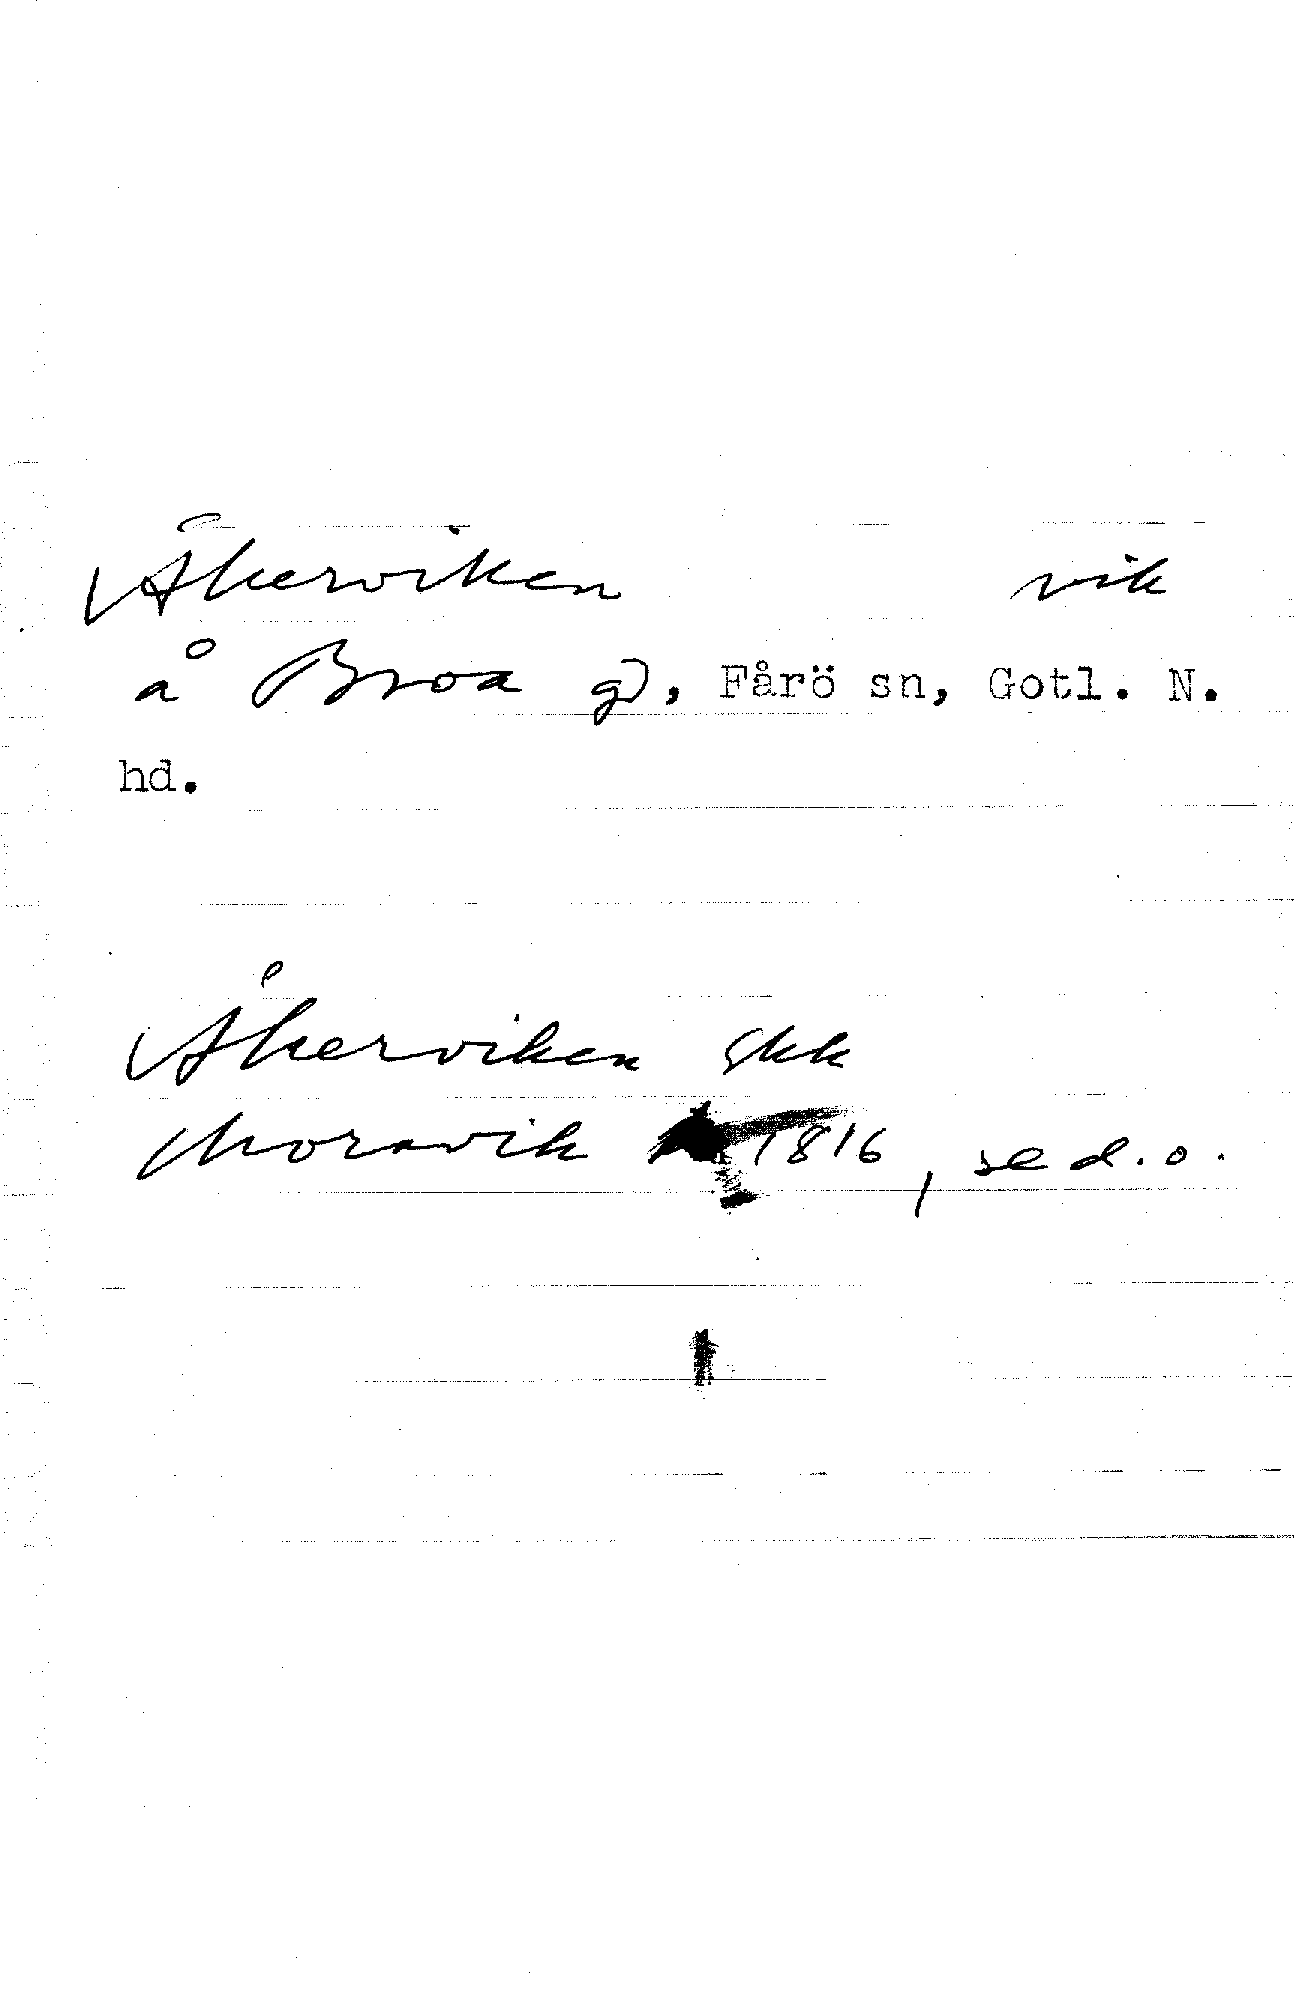 Åkerviken vik
å Broa gd, Fårö sn, Gotl. N.
hd.
Åkerviken Ekk
Moravik 1816, se d.o.